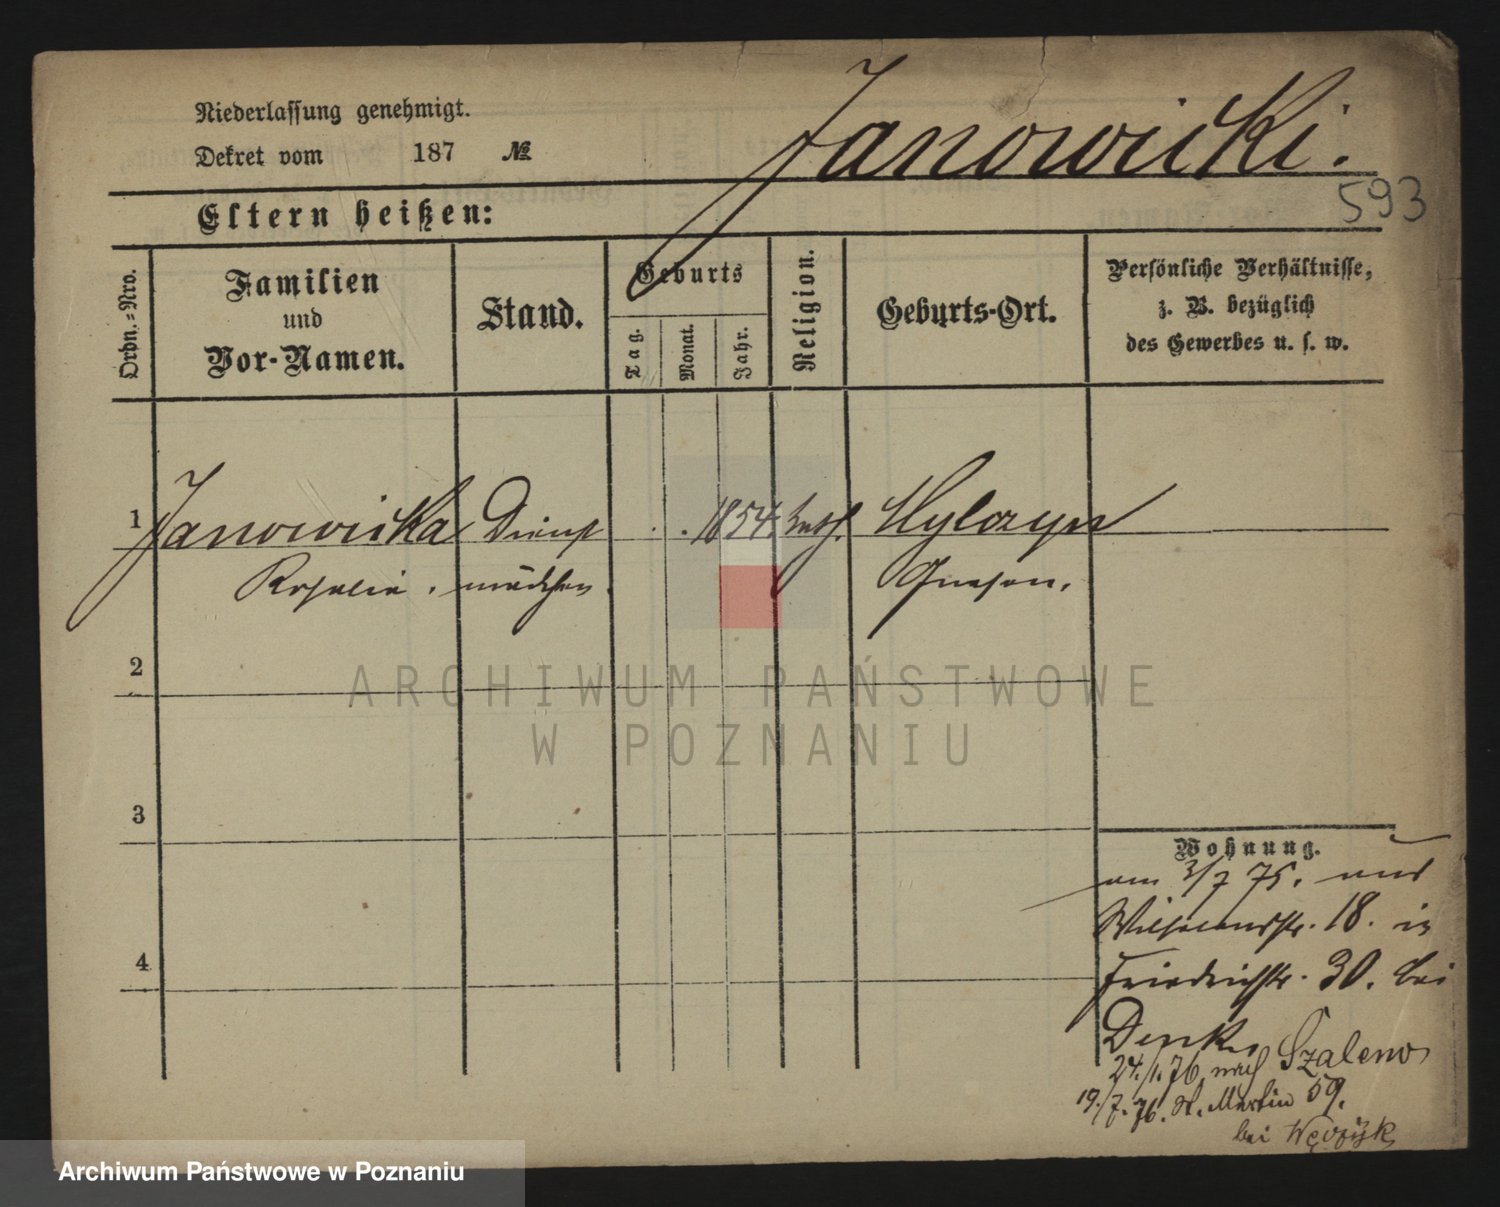 Niederlassung genehmigt.
Janowicki.
Dekret vom 187 №
593
Eltern heißen:
Ordn.=Nro.
Familien
und
Vor-Namen.
Stand.
Geburts
Tag.
Monat.
Jahr.
Religion.
Geburts-Ort.
Persönliche Verhältnisse,
z. B. bezüglich
des Gewerbes u. s. w.
1 Janowicka Dienst 1854. kath.
Rosalie. mädchen. Gnesen.
2
ARCHIWUM PAŃSTWOWE
W POZNANIU
3
4
Wohnung.
am 3/7 75. aus
Wilhelmstr. 18. in
Friedrichstr. 30. bei
Denk
24./1. 76. nach Szalenw
19./7. 76. St. Martin 59.
bei
Archiwum Państwowe w Poznaniu